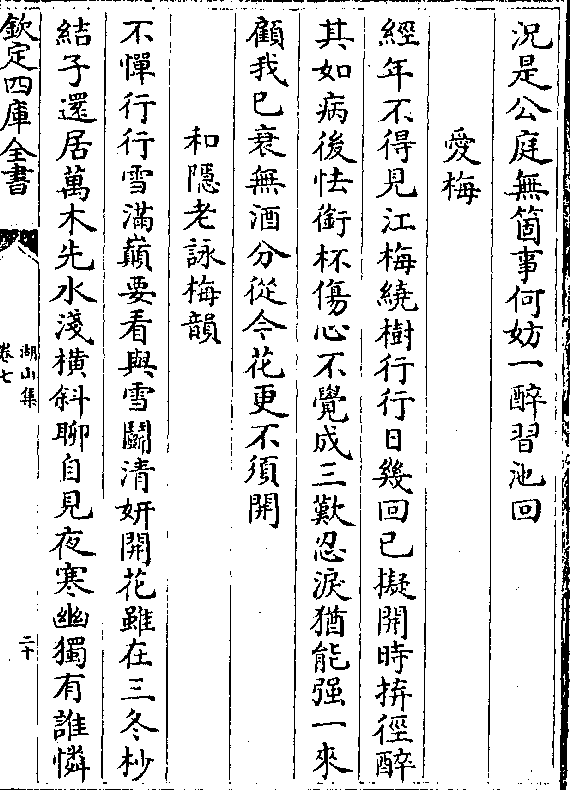 況是公庭無箇事何妨一醉習池回
愛梅
經年不得見江梅繞樹行行日幾回已擬開時拚徑醉
其如病後怯銜杯傷心不覺成三歎忍淚猶能强一來
顧我已衰無酒分從今花更不須開
和隱老詠梅韻
不憚行行雪滿巔要看與雪鬬清妍開花雖在三冬杪
結子還居萬木先水淺橫斜聊自見夜寒幽獨有誰憐
欽定四庫全書
湖山集
卷七
二十